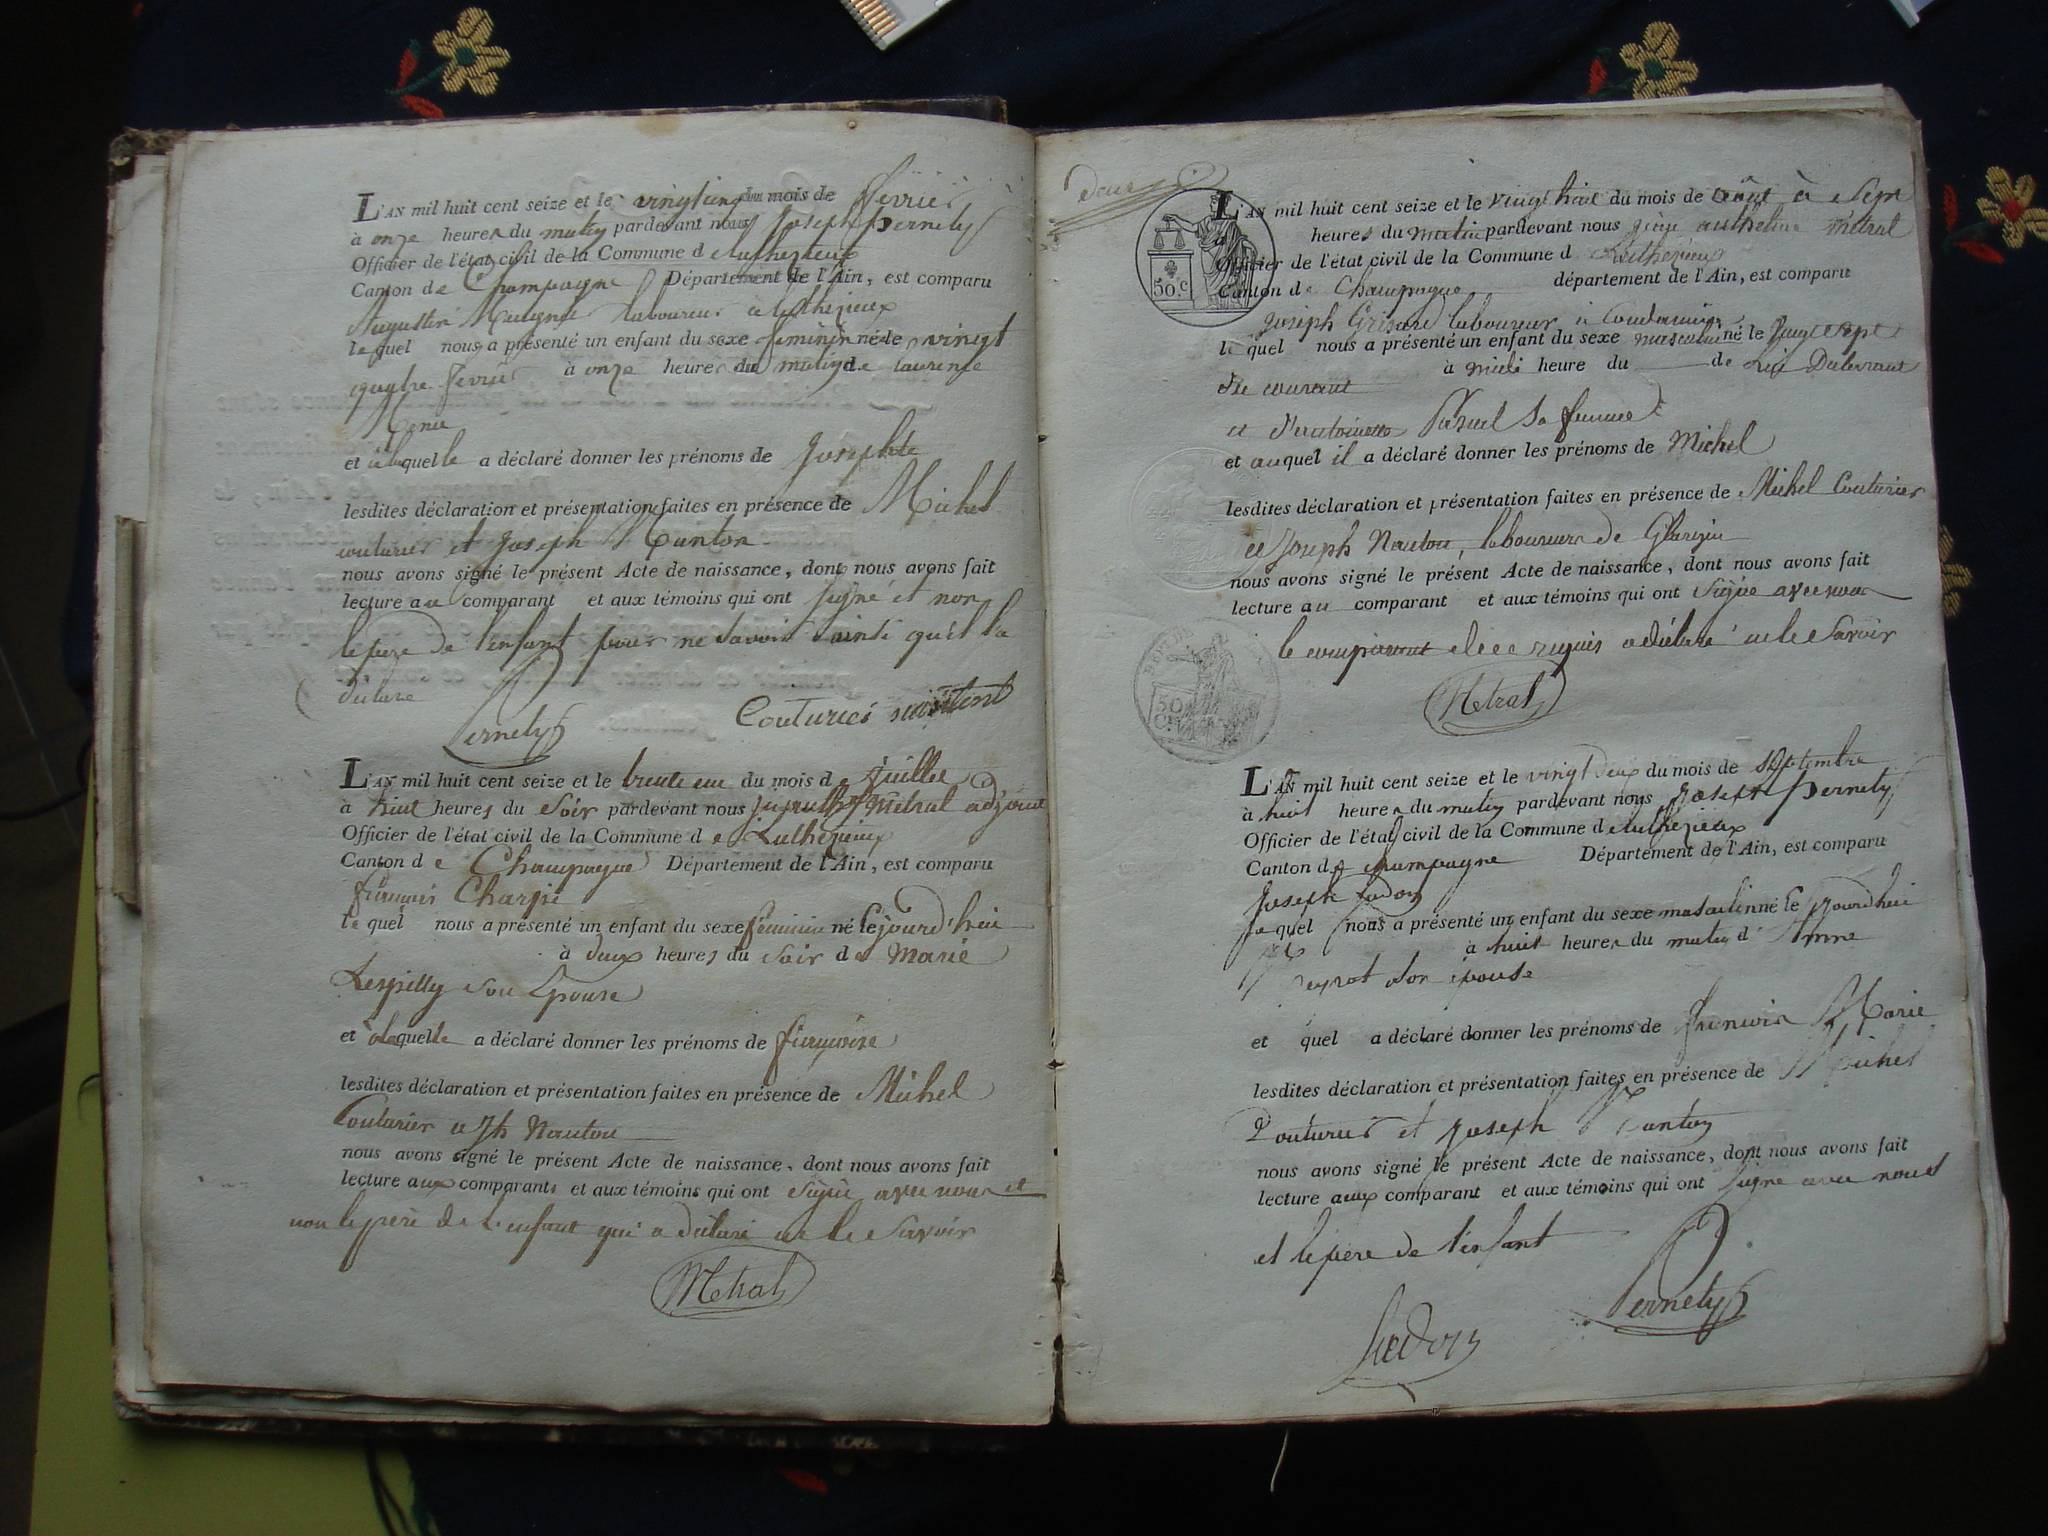 L'AN mil huit cent seize et le vingt cinq du mois de fevrier
à onze heures du matin pardevant nous Joseph Pernety
Officier de l'état civil de la Commune de Luthezieux
Canton de Champagne Département de l'Ain, est comparu
Augustin laboureur a Luthezieux
lequel nous a présenté un enfant du sexe feminin né le vingt
quatre fevrier à onze heures du matin de laurence
et à laquelle a déclaré donner les prénoms de Josephte
lesdites déclaration et présentation faites en présence de Michel
couturier et Joseph Nanton
nous avons signé le présent Acte de naissance, dont nous avons fait
lecture au comparant et aux témoins qui ont signé et non
le pere de l'enfant pour ne savoir ainsi qu'il la
declare
Pernety Couturier
L'AN mil huit cent seize et le trente un du mois de juillet
à huit heures du soir pardevant nous Metral adjoint
Officier de l'état civil de la Commune de Luthezieux
Canton de Champagne Département de l'Ain, est comparu
françois Charpi
le quel nous a présenté un enfant du sexe féminin né le jourd'hui
à deux heures du soir de Marie
Lespilly son Epouse
et à laquelle a déclaré donner les prénoms de françoise
lesdites déclaration et présentation faites en présence de Michel
Couturier et Jh Nanton
nous avons signé le présent Acte de naissance, dont nous avons fait
lecture aux comparants et aux témoins qui ont signé avec nous et
non le père de l'enfant qui a déclaré ne le savoir
Metral
deux
50.c
L'AN mil huit cent seize et le vingt huit du mois de août à sept
heures du matin pardevant nous anthelme métral
Officier de l'état civil de la Commune d Luthezieux
Canton de Champagne département de l'Ain, est comparu
Joseph Grisard laboureur à Condamine
le quel nous a présenté un enfant du sexe masculin né le vingt sept
à midi heure du de
du courant
et d'antoinette sa femme
et auquel il a déclaré donner les prénoms de Michel
lesdites déclaration et présentation faites en présence de Michel Couturier
et Joseph Nanton, laboureurs de
nous avons signé le présent Acte de naissance, dont nous avons fait
lecture au comparant et aux témoins qui ont signé avec nous
le comparant de ce requis a déclaré ne le savoir
50 C.
Metral
L'AN mil huit cent seize et le vingt deux du mois de septembre
à huit heures du matin pardevant nous Joseph Pernety
Officier de l'état civil de la Commune de Luthezieux
Canton de champagne Département de l'Ain, est comparu
Joseph fudon
le quel nous a présenté un enfant du sexe masculin né le jourdhui
à huit heures du matin d'Anne
peyrot son épouse
et quel a déclaré donner les prénoms de francois Marie
lesdites déclaration et présentation faites en présence de Michel
Couturier et Joseph Nanton
nous avons signé le présent Acte de naissance, dont nous avons fait
lecture aux comparant et aux témoins qui ont signe avec nous
et le père de l'enfant
Pernety